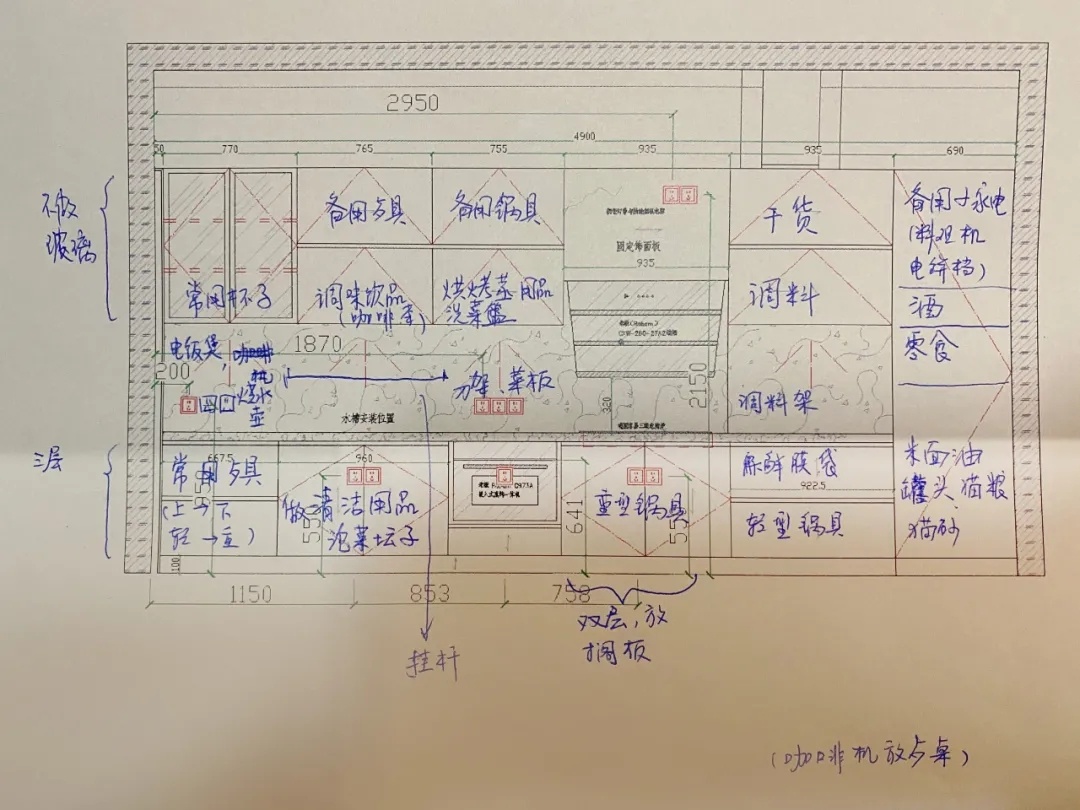 2950
4900
50
770
765
755
935
935
690
不做
玻璃
备用
备用锅具
固定饰面板
935
干货
备用小家电
电饼档)
常用杯子
调味饮品
(咖啡壶)
烘烤蒸用品
洗菜盆
CXW-200-27A2
调料
酒
零食
电饭煲,
烧水
壶
1870
200
刀架、菜板
水槽安装位置
320
2150
调料架
三层
常用
(上→下
轻→重)
960
清洁用品
泡菜坛子
641
重型锅具
保鲜膜袋
922.5
轻型锅具
米面油
罐头、猫粮
猫砂
100
1150
853
758
双层,放
搁板
挂杆
(咖啡机放桌)